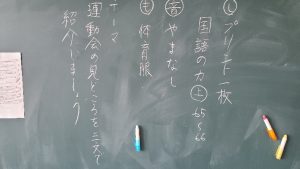 ㋛プリント一枚
国語の力㊤65〜66
㊟やまなし
㋲体育服
テーマ
運動会の見どころを三文で
紹介しましょう